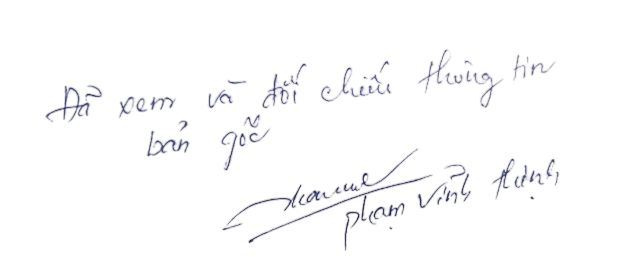 Đã xem và đối chiếu thông tin
bản gốc
Phạm Vĩnh Thịnh